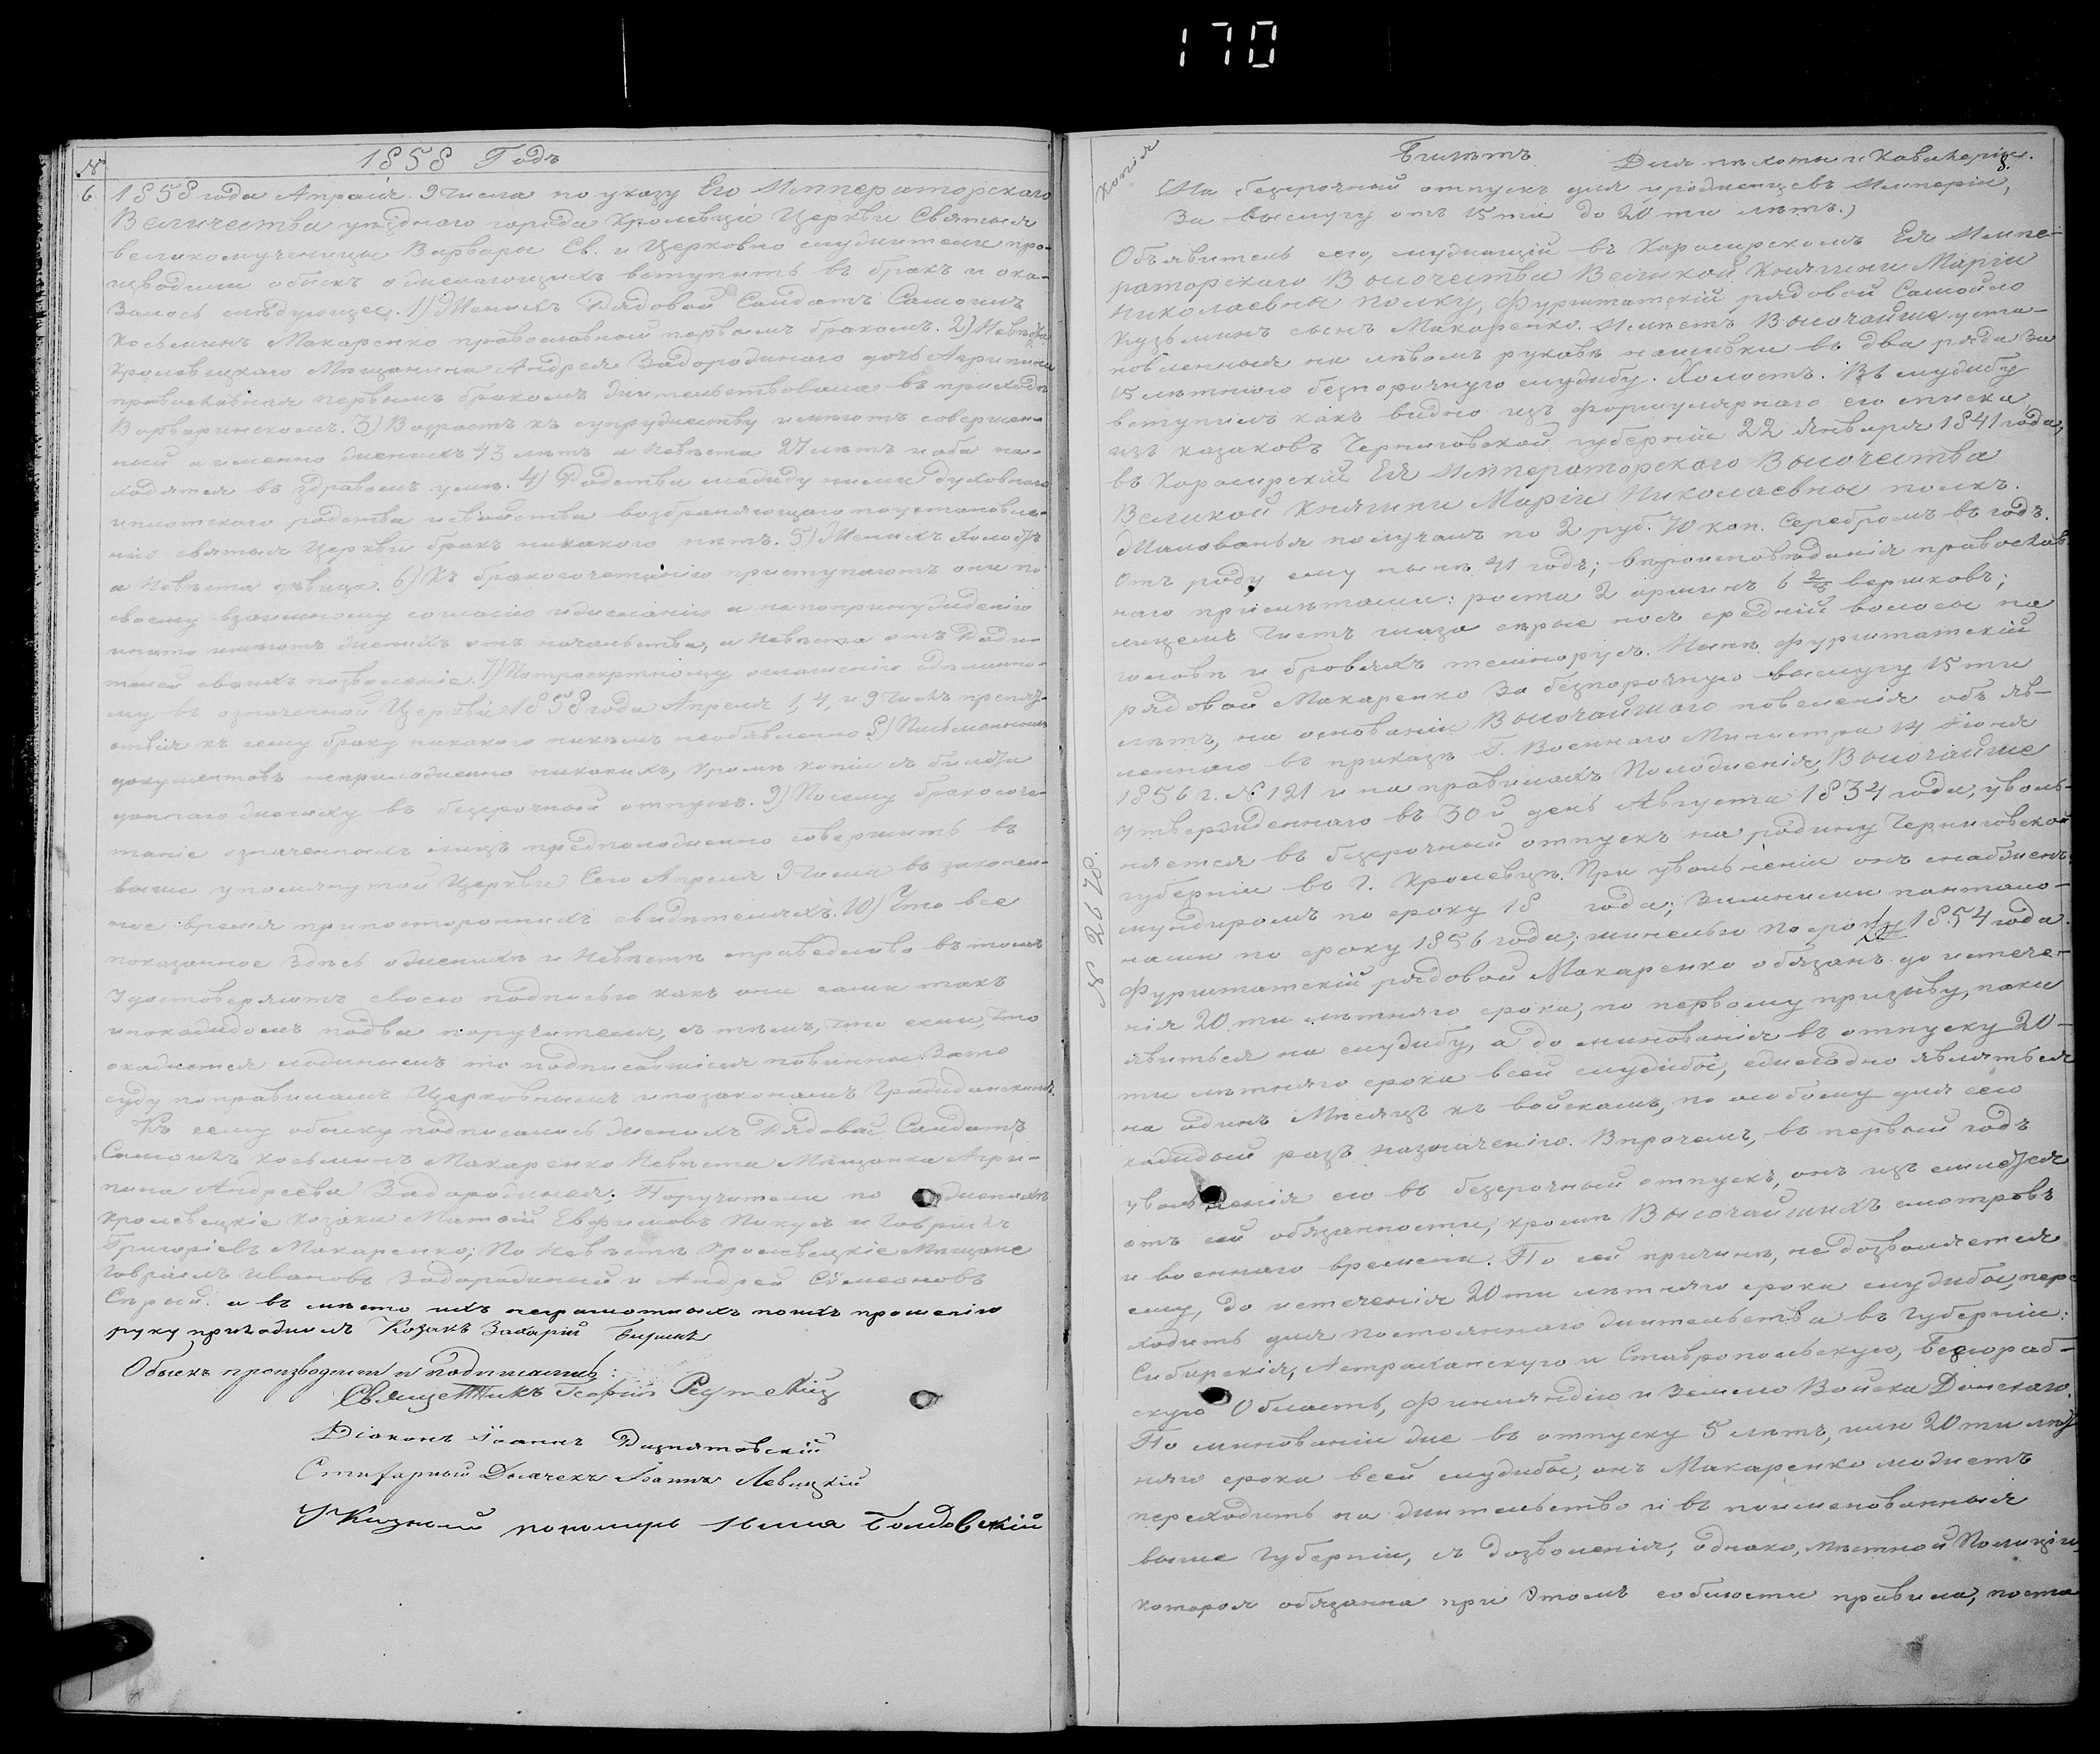 170
№
1858 Годъ
6
1858 года Апрѣля 9 числа по указу Его Императорскаго
Величества уѣзднаго города Кролевца Церкви Святыя
великомученицы Варвары Св. и Церковно служители про-
изводили обыскъ о желающихъ вступить въ бракъ и ока-
залось слѣдующее. 1) Женихъ Рядовой Солдатъ Самоилъ
Косьминъ Макаренко православный первымъ бракомъ. 2) Невѣста
Кролевецкаго Мѣщанина Андрея Задорожнаго дочь Агрипина
православная первымъ бракомъ жительствовала въ приходѣ
Варваринскомъ. 3) Возрастъ къ супружеству имѣютъ совершен-
ный а именно женихъ 43 лѣтъ а Невѣста 27 лѣтъ и оба на-
ходятся въ здравомъ умѣ. 4) Родства между ними духовнаго
и плотскаго родства и свойства возбраняющаго по установле-
нію святыя Церкви бракъ никакого нѣтъ. 5) Женихъ Холостъ
а Невѣста дѣвица. 6) Къ бракосочетанію приступаютъ они по
своему взаимному согласію и желанію а не по принужденію
и на то имѣютъ женихъ отъ начальства, а Невѣста отъ Роди-
телей своихъ позволеніе. 7) По троекртному оглашенію сдѣланно-
му въ означенной Церкви 1858 года Апрѣля 1, 4, и 9 числъ препят-
ствія къ сему браку никакого никѣмъ необъявлено 8) Письменныхъ
документовъ неприложенно никакихъ, кромѣ копіи съ билета
даннаго жениху въ безсрочный отпускъ. 9) Посему бракосоче-
таніе означенныхъ лицъ предположенно совершить въ
выше упомянутой Церкви Сего Апрѣля 9 числа въ законен-
ное время при постороннихъ свидѣтеляхъ. 10) Что все
показанное здѣсь о женихѣ и Невѣстѣ справедливо въ томъ
удостовѣряютъ своею подписью какъ они сами такъ
и по каждомъ по два поручителя, съ тѣмъ, что если, что
окажется ложнымъ то подписавшіеся повинны за то
суду по правиламъ Церковнымъ и по законамъ Гражданскимъ.
Къ сему обыску подписались женихъ Рядовой Солдатъ
Самоилъ Косьминъ Макаренко Невѣста Мѣщанка Агри-
пина Андреева Задорожная: Поручители по женихѣ
Кролевецкіе козаки Матѳій Евфимовъ и Гавріилъ
Григоріевъ Макаренко; По Невѣстѣ Кролевецкіе Мѣщане
Гавріилъ Ивановъ Задорожный и Андрей Симеоновъ
Сѣрый. а въ мѣсто ихъ неграмотныхъ по ихъ прошенію
руку приложилъ Козакъ Захарій
Обыскъ производили и подписали:
Священникъ Георгій
Діаконъ Іоаннъ
Дьячекъ Іоаннъ Левицкій
Указный пономарь Илья
Копія
Билетъ
Для пѣхоты и Кавалеріи.
8.
(На безсрочный отпускъ для уроженцевъ Имперіи,
За выслугу отъ 15ти до 20ти лѣтъ.)
Объявитель сего, служащій въ Харасирскомъ Ея Импе-
раторскаго Высочества Великой Княгини Маріи
Николаевны полку, Фурштатскій рядовой Самойло
Кузьминъ сынъ Макаренко. Имѣетъ Высочайше уста-
новленныя на лѣвомъ рукавѣ нашивки въ два ряда за
15 лѣтнюю безпорочную службу. Холостъ. Въ службу
вступилъ какъ видно изъ формулярнаго его списка
изъ казаковъ Черниговской губерніи 22 Января 1841 года,
въ Харасирскій Ея Императорскаго Высочества
Великой Княгини Маріи Николаевны полкъ.
Жалованья получалъ по 2 руб. 70 коп. Серебромъ въ годъ.
Отъ роду ему нынѣ 41 годъ; вѣроисповѣданія православ-
наго примѣтами: роста 2 аршинъ 6 2/8 вершковъ;
лицемъ чистъ глаза сѣрые носъ средній волосы на
головѣ и бровяхъ темнорус. Нынѣ Фурштатскій
рядовой Макаренко За безпорочную выслугу 15ти
лѣтъ, на основаніи Высочайшаго повеленія объяв-
леннаго въ приказѣ Г. Военнаго Министра 14 Іюня
1856 г. № 121 и на правилахъ Положенія, Высочайше
утвержденнаго въ 30й день Августа 1834 года, уволь-
няется въ безсрочный отпускъ на родину Черниговской
губерніи въ г. Кролевцѣ. При увольненіи онъ снабженъ:
мундиромъ по сроку 18 года; Зимними пантало-
нами по сроку 1856 года; шинелью по сроку 1854 года.
№ 2678.
Фурштатскій рядовой Макаренко обязанъ до истече-
нія 20ти лѣтняго срока, по первому призыву, паки
явиться на службу, а до минованія въ отпуску 20-
ти лѣтняго срока всей службы, ежегодно являться
на одинъ Мѣсяцъ къ войскамъ, по особому для сего
каждый разъ назначенію. Впрочемъ, въ первый годъ
увольненія его въ безсрочный отпускъ, онъ изъемлется
отъ сей обязанности, кромѣ Высочайшихъ смотровъ
и военнаго времени. По сей причинѣ, не дозволяется
ему, до истеченія 20ти лѣтняго срока службы, пере-
ходить для постояннаго жительства въ Губерніи:
Сибирскія, Астраханскую и Ставропольскую, Бесораб-
скую Область, Финляндію и Землю Войска Донскаго.
По минованіи же въ отпуску 5 лѣтъ, или 20ти лѣт-
няго срока всей службы, онъ Макаренко можетъ
переходить на жительство и въ поименованныя
выше Губерніи, съ дозволенія, однако, мѣстной Полиціи,
которая обязанна при этомъ соблюсти правила, поста